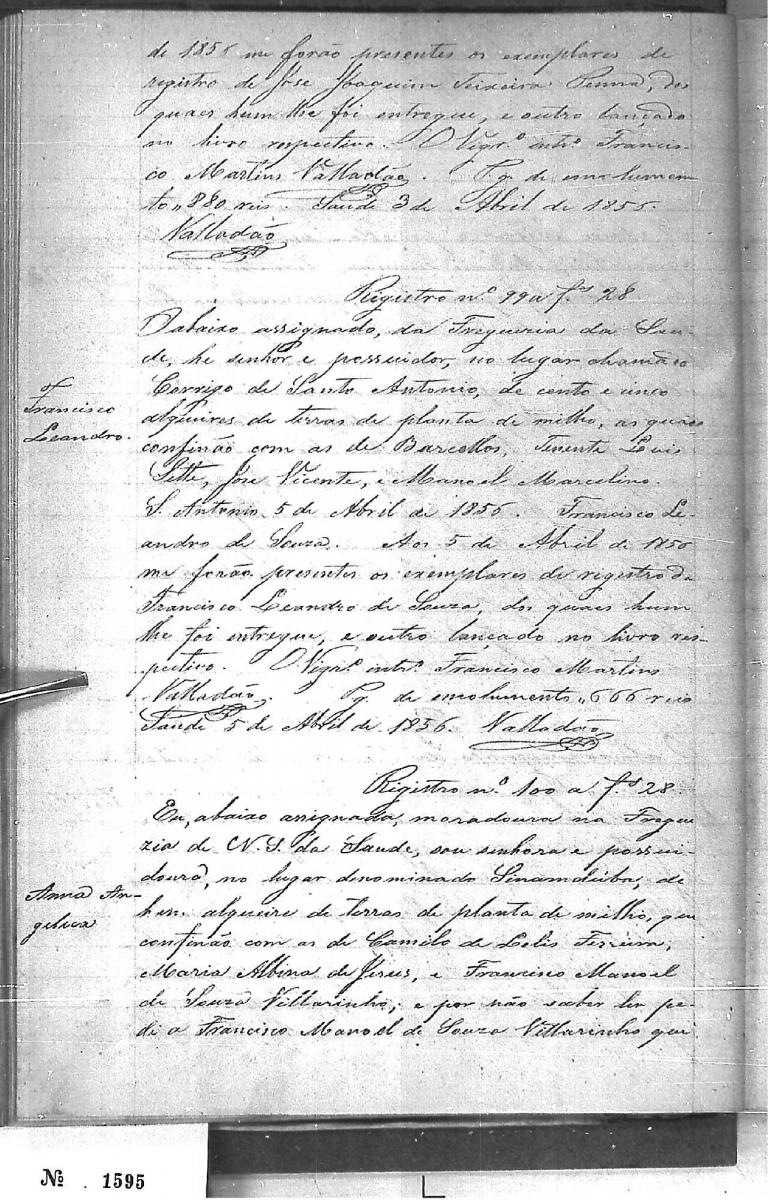 de 1856 me forão presentes os exemplares de
registro de Jose Joaquim Teixeira Penna, dos
quaes hum lhe foi entregue, e outro lançado
no livro respectivo. O Vigr.º intr.º Francis-
co Martins Valladão. Pg. de emolumen
to „ 880 reis. Saude 3 de Abril de 1856.
Valladão
Registro n.º 99 a f.s 28
O abaixo assignado, da Fregueria da Sau-
de, he senhor e possuidor, no lugar chamado
Corrigo de Santo Antonio, de cento e cinco
alqueires de terras de planta de milho, as quaes
confinão com as de Barcellos, Tenente Luis
Sette, Jose Vicente, e Manoel Marcelino.
S. Antonio 5 de Abril de 1856. Francisco Le-
andro de Souza. Aos 5 de Abril de 1856
me forão presentes os exemplares de registro de
Francisco Leandro de Souza, dos quaes hum
lhe foi entregue, e outro lançado no livro res-
pectivo. O Vigr.º intr.º Francisco Martins
Valladão. Pg. de emolumento „ 666 reis
Saude 5 de Abril de 1856. Valladão
Francisco
Leandro.
Registro n.º 100 a f.s 28.
Eu, abaixo assignada, moradoura na Fregue
zia de N. S. da Saude, sou senhora e possui-
doura, no lugar denominado Sinamduba, de
hum alqueire de terras de planta de milho, que
confinão com as de Camilo de Lelis Ferreira,
Maria Albina de Jesus, e Francisco Manoel
de Souza Villarinho; e por não saber ler pe-
di a Francisco Manoel de Souza Villarinho que
Anna An-
gelica
Nº 1595